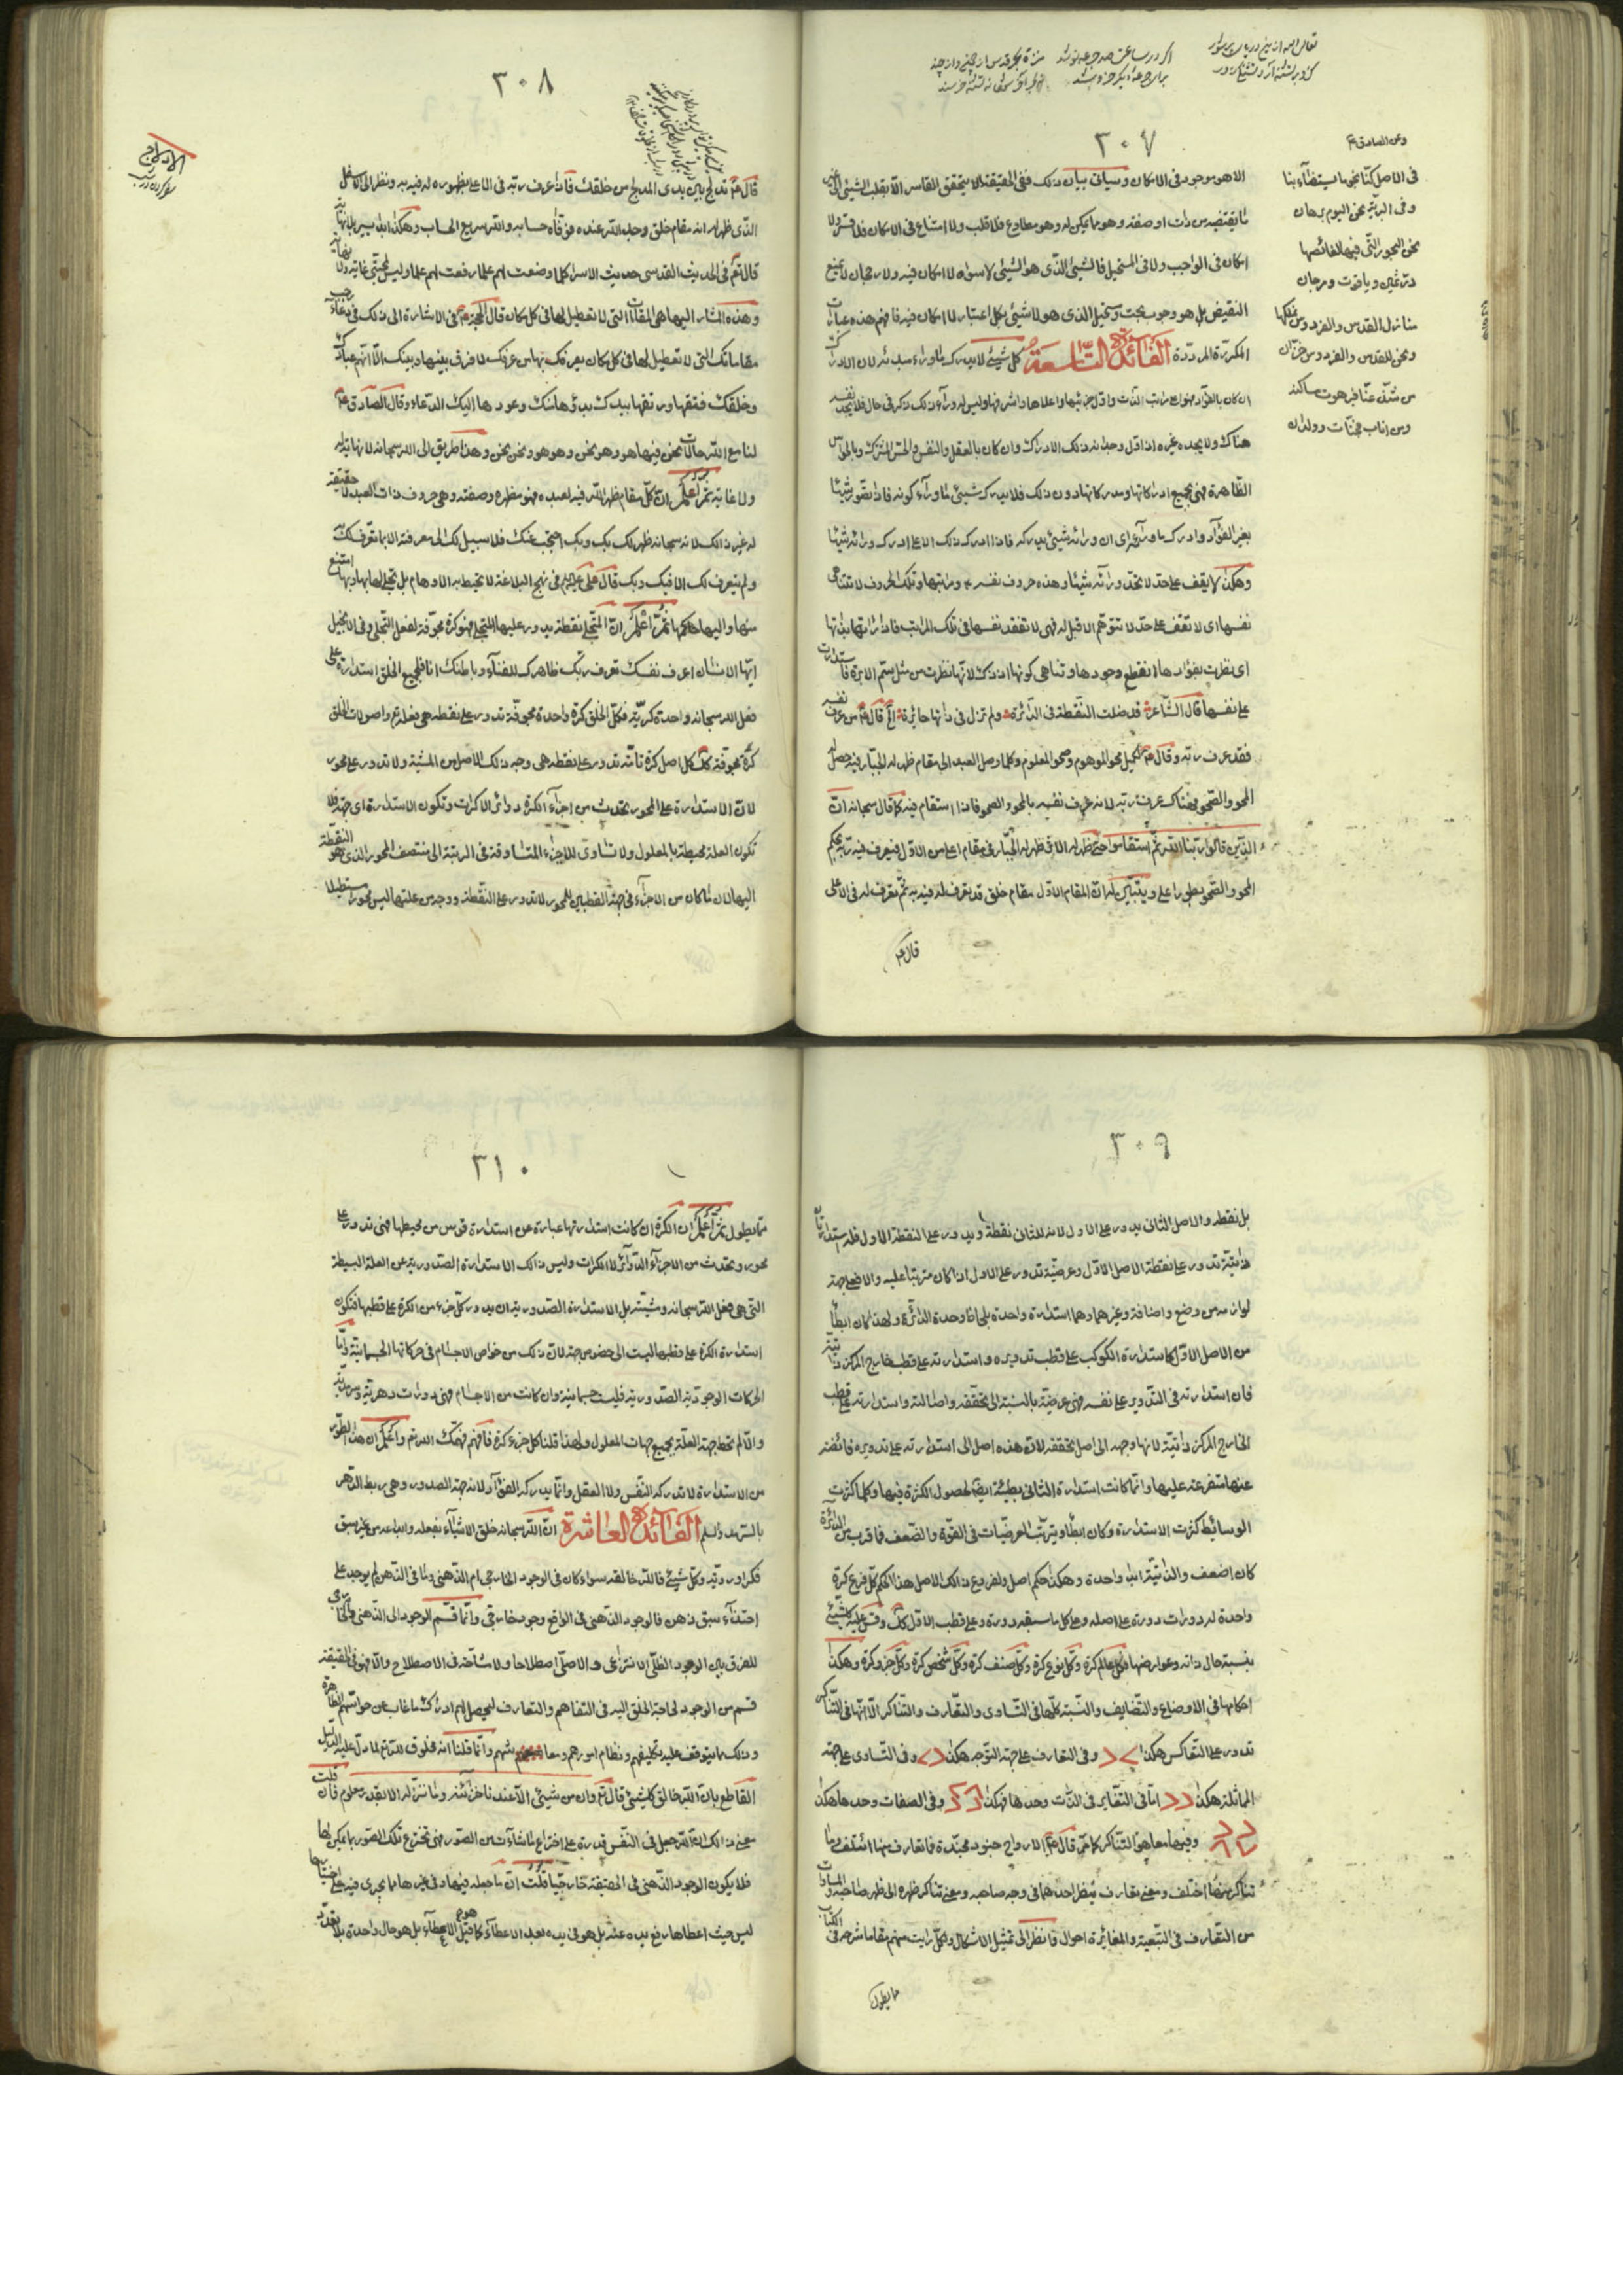 ٣٠٧
وعن الصادق ع
فى الاصل كنّا نجوما يستضآء بنا
وفى البريّة نحن اليوم برهان
نحن البحور التّى فيها لغائصها
درّ ثمين وياقوت ومرجان
منازل القدس والفردوس نملكها
ونحن للقدس والفردوس خزّان
من شذّ عنّا فبرهوت مساكنه
ومن اتاب فجنّات وولدان
الا هو موجود فى الامكان وسياتى بيان ذلك ففى الحقيقة لا يتحقق القاسر الّا بقلب الشيئ الى
ما يقتضيه من ذات او صفة وهو ما يمكن له وهو مطاوع فلا قلب ولا امتناع فى الامكان فلا قسر ولا
امكان فى الواجب ولا فى المستحيل فالشيئ الّذى هو الشيئ لا سواه لا امكان فيه ولا رجحان لا يمنع
النقيض بل هو وجوب بحت ومستحيل الذى هو لا شيئ بكل اعتبار لا امكان فيه فافهم هذه عبارات
المكررّة المردّدة الفائدة التّاسعة كل شيئ لا يدرك ما وراء مبدئه لان الادراك
ان كان بالفؤاد فهو اعلى مراتب الذّات واوّل جزئيها واعلاها واشرفها وليس له ورآء ذلك ذكر فى حال فلا يجد نفسه
هناك ولا يجده غيره اذ اوّل وجدانه ذلك الادراك وان كان بالعقل والنفس والحس المشترك وبالحواس
الظاهرة فهى بجميع ادراكاتها ومدركاتها دون ذلك فلا يدرك شيئ ما ورآء كونه فاذا تصوّر شيئا
بغير الفؤاد وادرك ما ورآءه راى ان وراءه شيئ يدركه فاذا ادرك ذلك الاعلى ادرك وراءه شيئا
وهكذا لا يقف على حدّ لا يجد ورآئه شيئا وهذه حروف نفسه ومراتبها وتلك الحروف لا تتناهى
نفسها اى لا تقف على حدّ لا تتوهّم الا قبل له فهى لا تفقد نفسها فى تلك المراتب فاذا راتها بذاتها
اى نظرت بفؤادها انقطع وجودها وتناهى كونها اذ ذاك لانّها نظرت من مثل سمّ الابرة فاستدارت
على نفسها قال الشّاعر قد ضلت النقطة فى الدّائرة ولم تزل فى ذاتها حائرة الخ قال ع من عرف نفسه
فقد عرف ربّه وقال ع لكميل محو الموهوم وصحو المعلوم وكلما وصل العبد الى مقام ظهر له الجبّار فيه حصل له
المحو والصّحو فهناك عرف ربّه لانه عرف نفسه بالمحو والصحو فاذا استقام فيه كما قال سبحانه انّ
الّذين قالوا ربّنا الله ثمّ استقاموا حتّى ظهر له الجبّار فى مقام اعلى من الاوّل فيعرف فيه ربّه بحكم
المحو والصّحو بطور اعلى ويتبيّن له انّ المقام الاوّل مقام خلق قد تعرف له فيه به ثمّ تعرف له فى الاعلى
قال ع
٣٠٨
الادلاج
قال ع تدلج بين يدى المدلج من خلقك فاذا عرف ربّه فى الاعلى بظهوره له فيه به ونظر الى الاسفل
الّذى ظهر له انه مقام خلق وجد الله عنده فوفّاه حسابه والله سريع الحساب وهكذا ابدا يسير بلا نهاية
قال تع فى الحديث القدسى حديث الاسرار كلما وضعت لهم علما رفعت لهم علما وليس لمحبّتى غاية ولا نهاية
وهذه المشار اليها هى المقامات التى لا تعطيل لها فى كل مكان قال الحجّة ع فى الاشارة الى ذلك فى دعاء رجب
مقاماتك التى لا تعطيل لها فى كل مكان يعرفك بها من عرفك لا فرق بينها وبينك الّا انّهم عبادك
وخلقك فتقها ورتقها بيدك بدؤها منك وعودها اليك الدّعاء وقال الصّادق ع
لنا مع الله حالات نحن فيها هو وهو نحن وهو هو ونحن نحن وهذا طريق الى الله سبحانه لا نهاية له
ولا غاية ثمّ اعلم انّ كلّ مقام ظهر الله فيه لعبده فهو مظهره وصفته وهى حروف ذات العبد لا حقيقة
له غير ذالك لانه سبحانه ظهر لك بك وبك احتجب عنك فلا سبيل لك الى معرفته الا بما تعرّف لك به
ولم يتعرف لك الا فيك وبك قال على ع فى نهج البلاغة لا تحيط به الاوهام بل تجلى لها بها وبها امتنع
منها واليها حاكمها ثمّ اعلم انّ المتجلّى نقطة يدور عليها المتجلى فهو كرة مجوّفة لفعل التجلى وفى الانجيل
ايّها الانسان اعرف نفسك تعرف ربّك ظاهرك للفنآء وباطنك انا فلجميع الخلق استدارة على
فعل الله سبحانه واحدة كريّة فكلّ الخلق كرة واحدة مجوفّة تدور على نقطة هى فعله تع واصولات الخلق
كرة مجوفة كك كل اصل كرة تامّة تدور على نقطة هى وجه ذلك الاصل من المشية ولا تدور على محور
لانّ الاستدارة على المحور يحدث من اجزآء الكرة دوائر لا كرات وتكون الاستدارة اى جهة فلا
تكون العلة محيطة بالمعلول ولا تساوى الاجزاء المتساوقة فى الرتبة الى منتصف المحور الذى هو النقطة
اليها لان ما كان من الاجزآء فى جهة القطبين للمحور لا تدور على النّقطة ووجه من علتها ليس محورا مستطيلا
٣٠٩
بل نقطة والاصل الثانى يدور على الاول لانه للثانى نقطة ويدور على النقطة الاول فله استدارتان
ذاتيّة تدور على نقطة الاصل الاوّل وعرضيّة تدور على الاول اذا كان مترتبا عليه والا فعلى جهة
لوازمه من وضع واضافة وغيرهما وهما استدارة واحدة بلحاظ وحدة الدائرة ولهذا كان ابطأ
من الاصل الاوّل كاستدارة الكوكب على قطب تدويره واستدارته على قطب خارج المركز ذاتيّة
فان استدارته فى التّدوير على نفسه فهى عرضيّة بالنسبة الى تحقّقه واصالته واستدارته على قطب
الخارج المركز ذاتيّة لانها وجه الى اصل تحققه لانّ هذه اصل الى استدارته على تدويره فائضة
عنها متفرعة عليها وانّما كانت استدارة الثانى بطيئة ايضا لحصول الكثرة فيها وكلما كثرت
الوسائط كثرت الاستدارة وكان ابطأ ويترتّب العرضيّات فى القوّة والضّعف فما قرب من الدائرة
كان اضعف والذاتيّة ابدا واحدة وهكذا حكم اصل ولفروع ذالك الاصل هذا الحكم كلّ فرع كرة
واحدة له دورات دورة على اصله وعلى كل ما سبقه دورة وعلى قطب الاوّل كك وقس عليه كل شيئ
بنسبة حال ذاته وعوارضها فكل عالم كرة وكلّ نوع كرة وكلّ صنف كرة وكلّ شخص كرة وكلّ جزو كرة وهكذا
احكامها فى الاوضاع والتّضايف والنّسبة كلّها فى التّساوى والتّعارف والتّناكر الّا انّها فى التّناكر
تدور على التّعاكس هكذا > < وفى التعارف على جهة التوجه هكذا < > وفى التّساوى على جهة
المماثلة هكذا < < امّا فى التّغاير فى الذّات وحدها فهكذا وفى الصفات وحدها هكذا
وفيهما معا هو التّناكر كما مرّ قال ع الارواح جنود مجنّدة فما تعارف منها ائتلف وما
تناكر منها اختلف ومعنى تعارف ينظر احدهما فى وجه صاحبه ومعنى تناكر ظهره الى ظهر صاحبه والمساوات
من التّعارف فى التّبعيّة والمغائرة احوال فانظر الى تمثيل الاشكال ولكلّ رايت منهم مقاما شرحه فى الكتاب
مما يطول
٣١٠
ممّا يطول ثمّ اعلم ان الكرة ان كانت استدارتها عبارة عن استدارة قوس من محيطها فهى تدور على
محور ويحدث من الاجزآء الدّوائر لا الكرات وليس ذالك الاستدارة الصّدورية عن العلة البسيطة
التى هى فعل الله سبحانه ومشيّته بل الاستدارة الصّدورية ان يدور كلّ جزء من الكرة على قطبها فتكون
استدارة الكرة على قطبها ليست الى خصوص جهة لانّ ذلك من خواص الاجسام فى حركاتها الجسمانيّة وامّا
الحركات الوجوديّة الصّدورية فليست جسمانيّة وان كانت من الاجسام فهى دورات دهريّة وسرمديّة
والّا لم تحط جهة العلّة بجميع جهات المعلول ولهذا قلنا كل جزء كرة فافهم فهّمك الله تع واعلم ان هذا الطّور
من الاستدارة لا تدركه النّفس ولا العقل وانّما يدركه الفؤآد لانه جهة الصدور وهى ربط الدّهر
بالسّرمد والسلم الفائدة العاشرة انّ الله سبحانه خلق الاشيآء بفعله وابداعه من غير سبق
فكر او رويّة وكلّ شيئ فالله خالقه سواء كان فى الوجود الخارجى ام الذّهنى وما فى الذّهن لم يوجد على
احتذآء سبق ذهن فالوجود الذّهنى فى الواقع وجود خارجى وانّما قسّم الوجود الى الذّهنى والخارجى
للفرق بين الوجود الظلّى الانتزاعى والاصلّى اصطلاحا ولا مشاحّة فى الاصطلاح والّا فهو فى الحقيقة
قسم من الوجود لحاجة الخلق اليه فى التفاهم والتعارف ليحصل لهم ادراك ما غاب عن حواسّهم الظّاهرة
وذلك ممّا يتوقف عليه تكليفهم ونظام امورهم ومعاشهم وانّما قلنا انّه مخلوق لله تع لما دلّ عليه الدّليل
القاطع بانّ الله خالق كل شيئ قال تع وان من شيئ الّا عندنا خزآئنه وما ننزّله الا بقدر معلوم فان قلت
معنى ذالك انّ الله جعل فى النّفس قدرة على اختراع ما شآءت من الصّور فهى تخترع تلك الصّور بما يمكن لها
فلا يكون الوجود الذّهنى فى الحقيقة خارجيّا قلت انّ ما جعله فيها وفى غيرها مما يجرى فيه على اختيارها
ليس حيث اعطاها رفع يده عنه بل هو فى يده بعد الاعطآء كما قبل الاعطآء بل هو حال واحدة بلا تعدّد